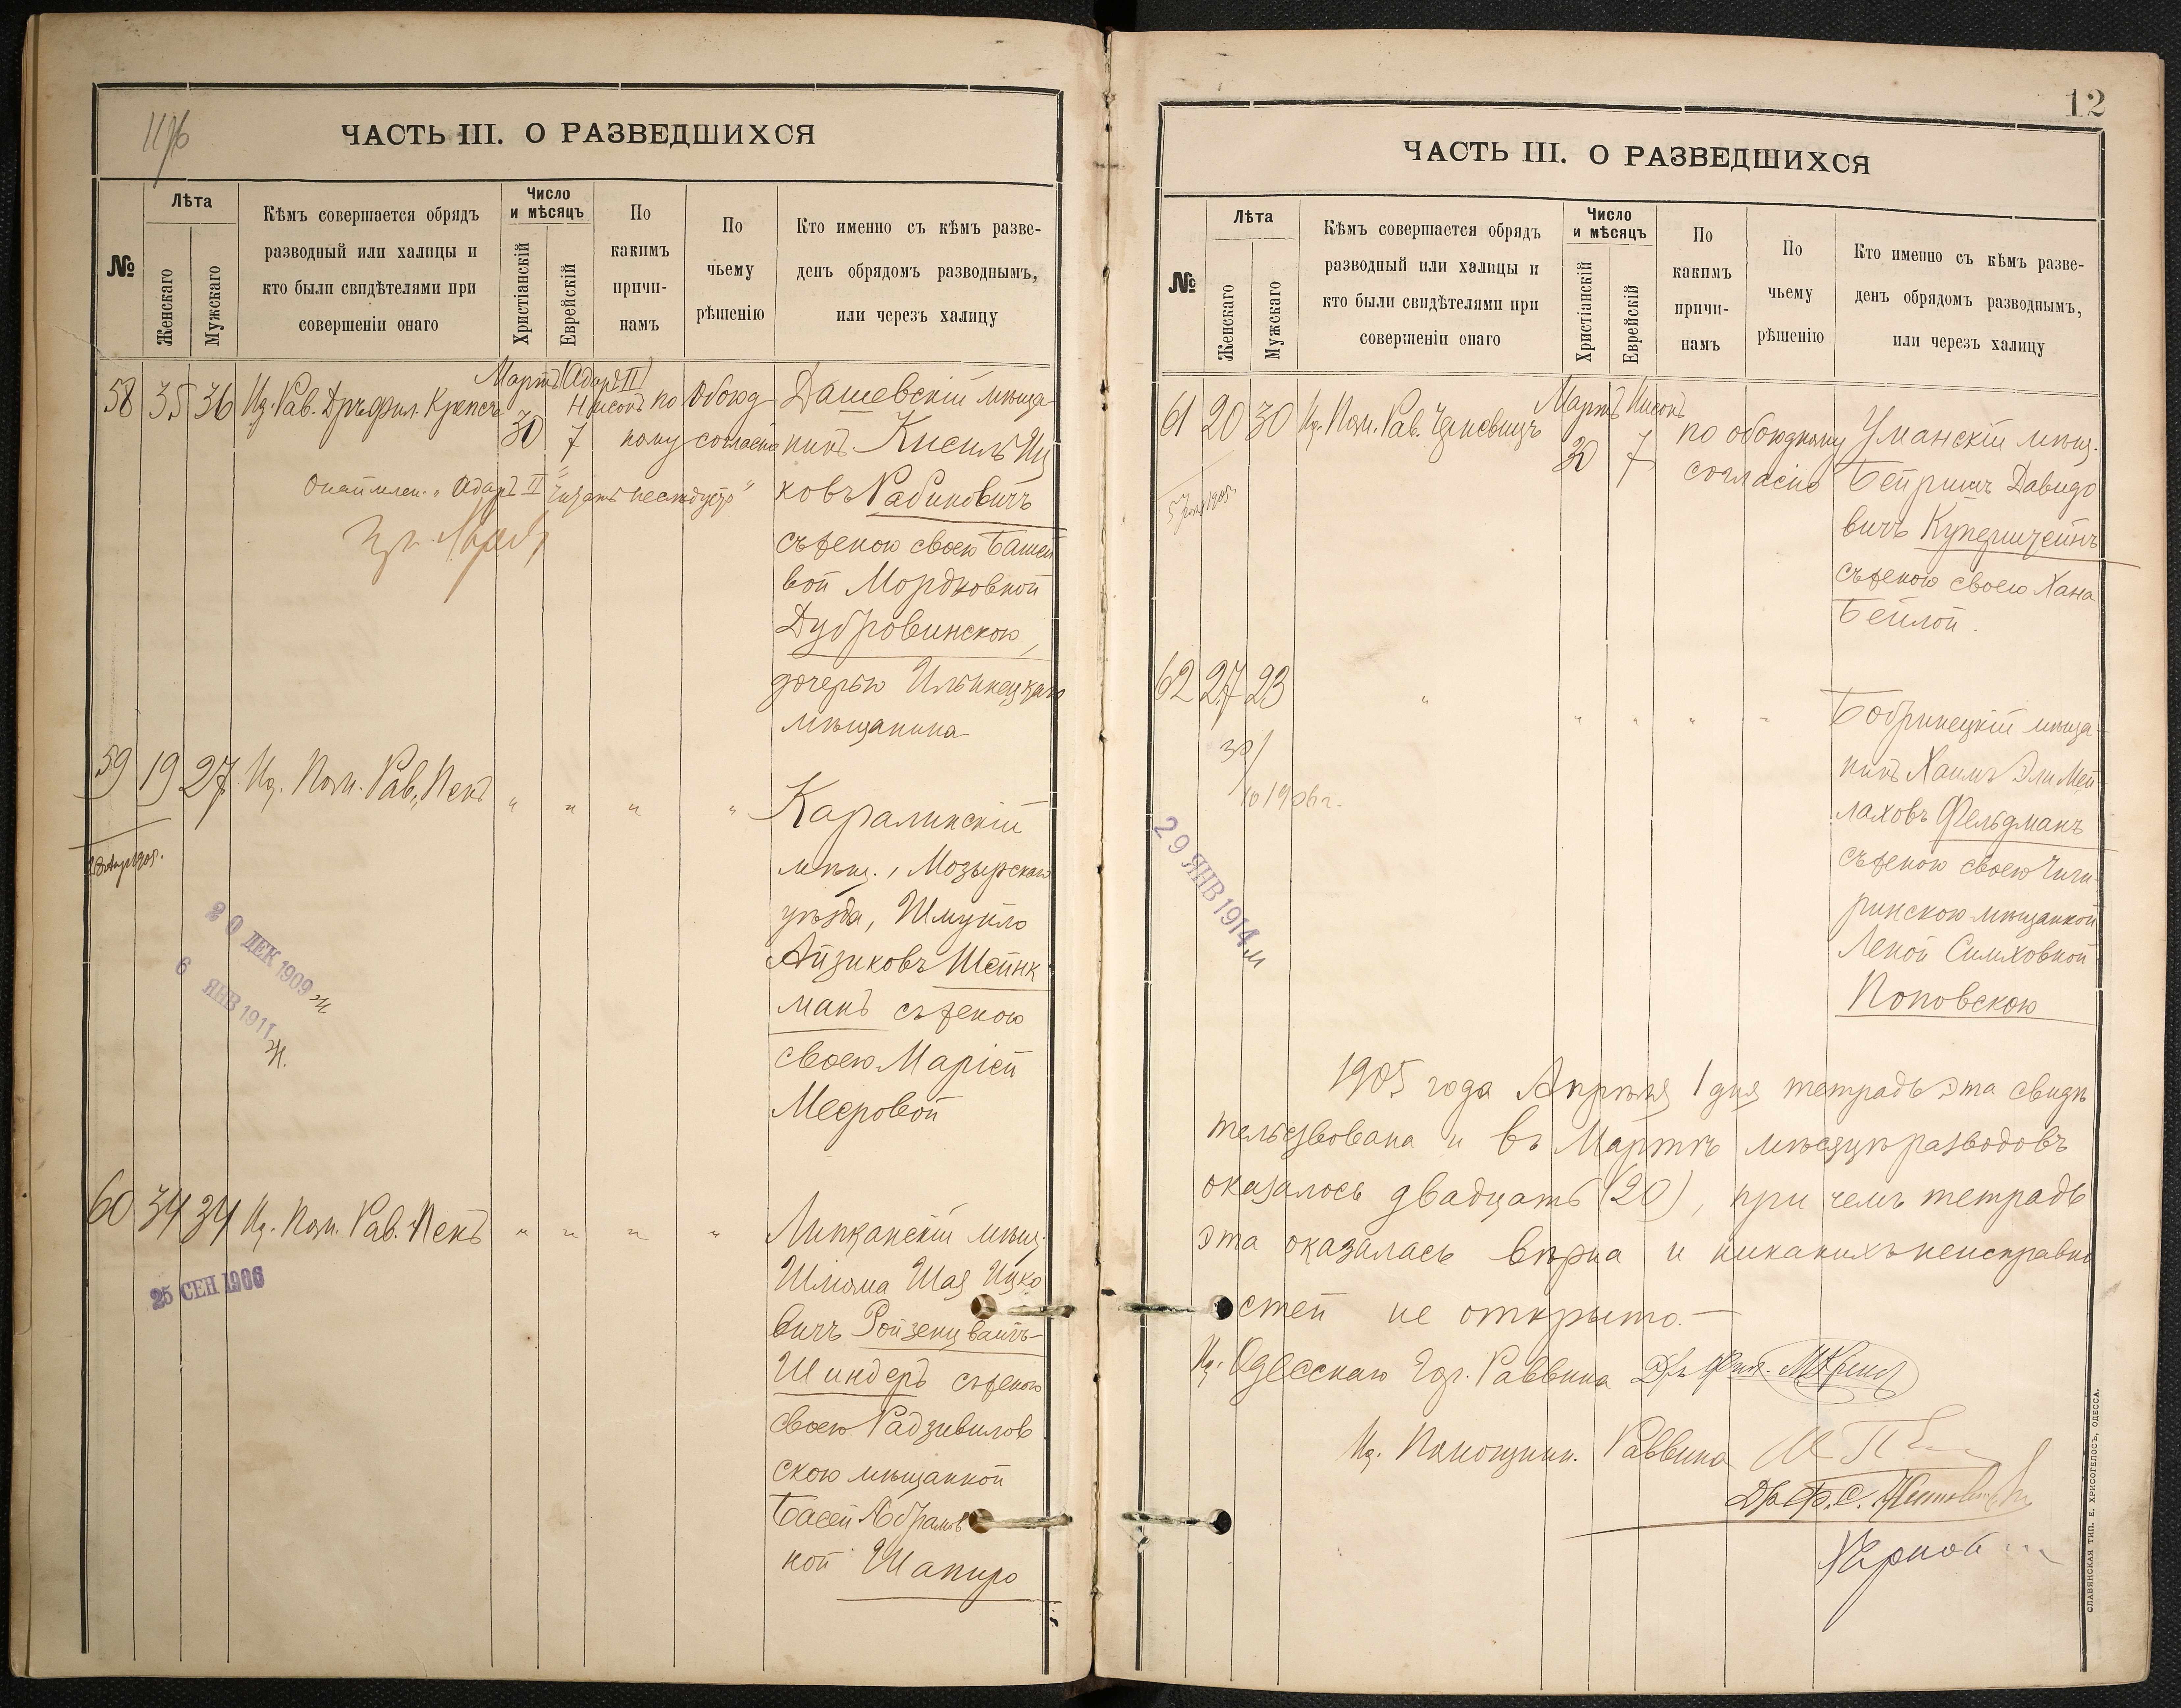 11/б
ЧАСТЬ III. О РАЗВЕДШИХСЯ
№
Лѣта
Женскаго
Мужскаго
Кѣмъ совершается обрядъ
разводный или халицы и
кто были свидѣтелями при
совершеніи онаго
Число
и мѣсяцъ
Христіанскій
Еврейскій
По
какимъ
причи-
намъ
По
чьему
рѣшенію
Кто именно съ кѣмъ разве-
денъ обрядомъ разводнымъ,
или черезъ халицу
58 35 36 Ид. Рав. Дръ фил. Крепсъ
Мартъ Адаръ II
Нисонъ
30 7
по обоюд
ному согласію
Дашевскій мѣща
нинъ Кисиль Иц
ковъ Рабиновичъ
съ женою своею Башей
вой Мордковной
Дубровинскою,
дочерью Ильинецкаго
мѣщанина
"Адаръ II" читать не слѣдуетъ"
59 19 27 Ид. Пом. Рав. Пенъ " " " "
Каралинскій
мѣщ., Мозырскаго
уѣзда, Шмуило
Айзиковъ Шейнк
манъ съ женою
своею Маріей
Мееровой
20 ДЕК 1909 Ж.
6 ЯНВ 1911 Ж.
60 34 34 Ид. Пом. Рав. Пенъ " " " "
25 СЕН 1906
Липканскій мѣщ.
Шлома Шая Ицко
вичъ Ройзенцвайгъ-
Шиндеръ съ женою
своею Радзивилов
скою мѣщанкой
Басей Абрамов
ной Шапиро
12
ЧАСТЬ III. О РАЗВЕДШИХСЯ
№
Лѣта
Женскаго
Мужскаго
Кѣмъ совершается обрядъ
разводный или халицы и
кто были свидѣтелями при
совершеніи онаго
Число
и мѣсяцъ
Христіанскій
Еврейскій
По
какимъ
причи-
намъ
По
чьему
рѣшенію
Кто именно съ кѣмъ разве-
денъ обрядомъ разводнымъ,
или черезъ халицу
61 20 30 Ид. Пом. Рав.
Мартъ Нисонъ
30 7
по обоюдному
согласію
Уманскій мѣщ.
Бейришъ Давидо
вичъ Куперштейнъ
съ женою своею Хана
Бейлой.
62 27 23 " " " " "
30/
10 1906 г.
29 ЯНВ 1914 М
Бобринецкій мѣща-
нинъ Хаимъ Эли Мей-
лаховъ Фельдманъ
съ женою своею Чиги-
ринскою мѣщанкой
Леной Симховной
Поповскою
1905 года Апрѣля 1 дня тетрадь эта свидѣ
тельствована и въ Мартѣ мѣсяцѣ разводовъ
оказалось двадцать (20), при чемъ тетрадь
эта оказалась вѣрна и никакихъ неисправно
стей не открыто.—
Ид. Одесскаго Гор. Раввина Дръ фил.
Ид. Помощник. Раввина
СЛАВЯНСКАЯ ТИП. Е. ХРИСОГЕЛОСЪ, ОДЕССА.